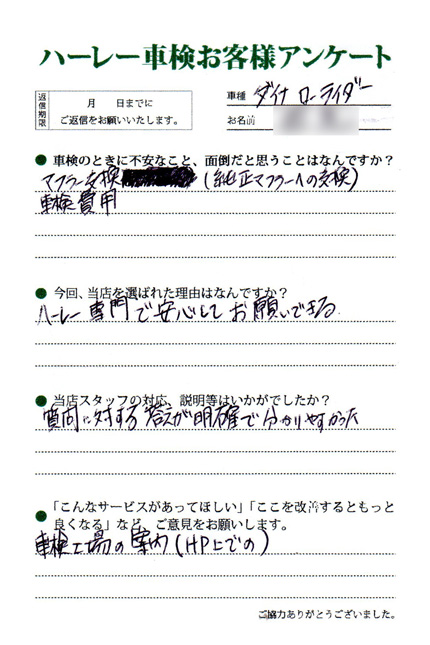 ハーレー車検お客様アンケート
返信期限
月　日までに
ご返信をお願いいたします。
車種 ダイナ ローライダー
お名前
● 車検のときに不安なこと、面倒だと思うことはなんですか？
マフラー交換 (純正マフラーへの交換)
車検費用
● 今回、当店を選ばれた理由はなんですか？
ハーレー専門で安心してお願いできる
● 当店スタッフの対応、説明等はいかがでしたか？
質問に対する答えが明確で分かりやすかった
● 「こんなサービスがあってほしい」「ここを改善するともっと
良くなる」など、ご意見をお願いします。
車検工場の案内(HP上での)
ご協力ありがとうございました。